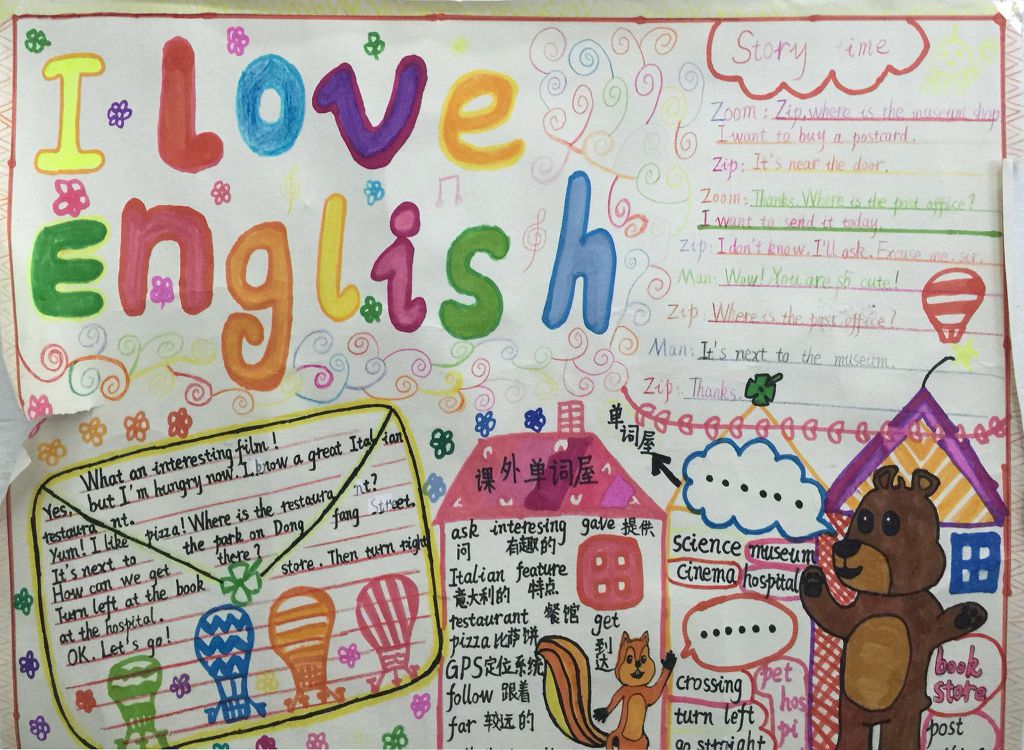 I Love
English
Story time
Zoom: Zip, where is the museum shop
I want to buy a postcard.
Zip: It's near the door.
Zoom: Thanks. Where is the post office?
I want to send it today.
Zip: I don't know. I'll ask. Excuse me, sir.
Man: Wow! You are so cute!
Zip: Where is the post office?
Man: It's next to the museum.
Zip: Thanks.
What an interesting film!
Yes, but I'm hungry now. I know a great Italian
restaurant.
Yum! I like pizza! Where is the restaurant?
It's next to the park on Dong fang Street.
How can we get there?
Turn left at the book store. Then turn right
at the hospital.
OK. Let's go!
课外单词屋
ask interesing gave 提供
问 有趣的
Italian feature
意大利的 特点
restaurant 餐馆
pizza 比萨饼 get
GPS 定位系统 到达
follow 跟着
far 较远的
单词屋
......
science museum
cinema hospital
......
crossing
turn left
go straight
pet
hos
pi
book
store
post